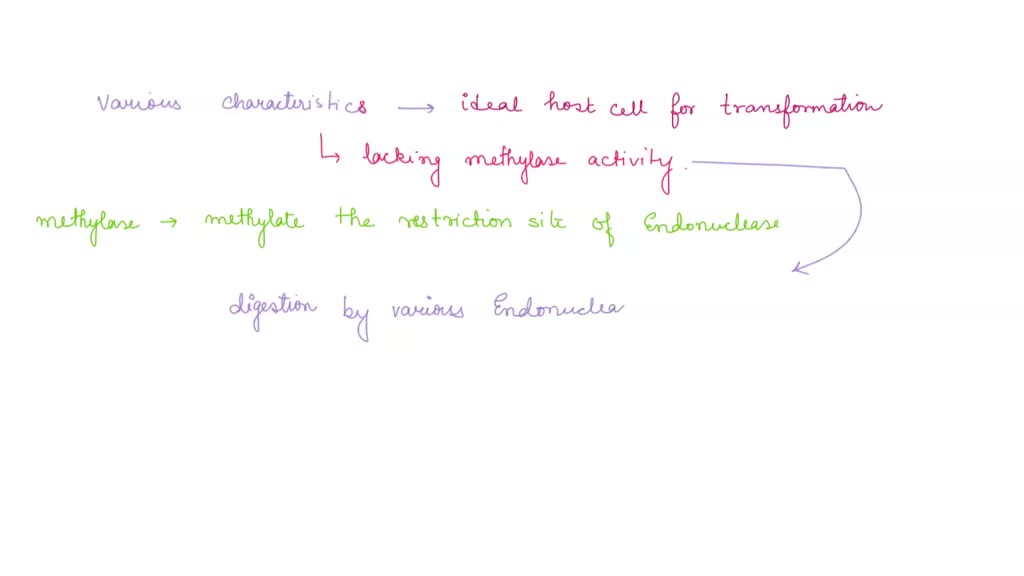 Various characteristics → ideal host cell for transformation
↳ lacking methylase activity.
methylase → methylate the restriction site of Endonuclease
digestion by various Endonuclea